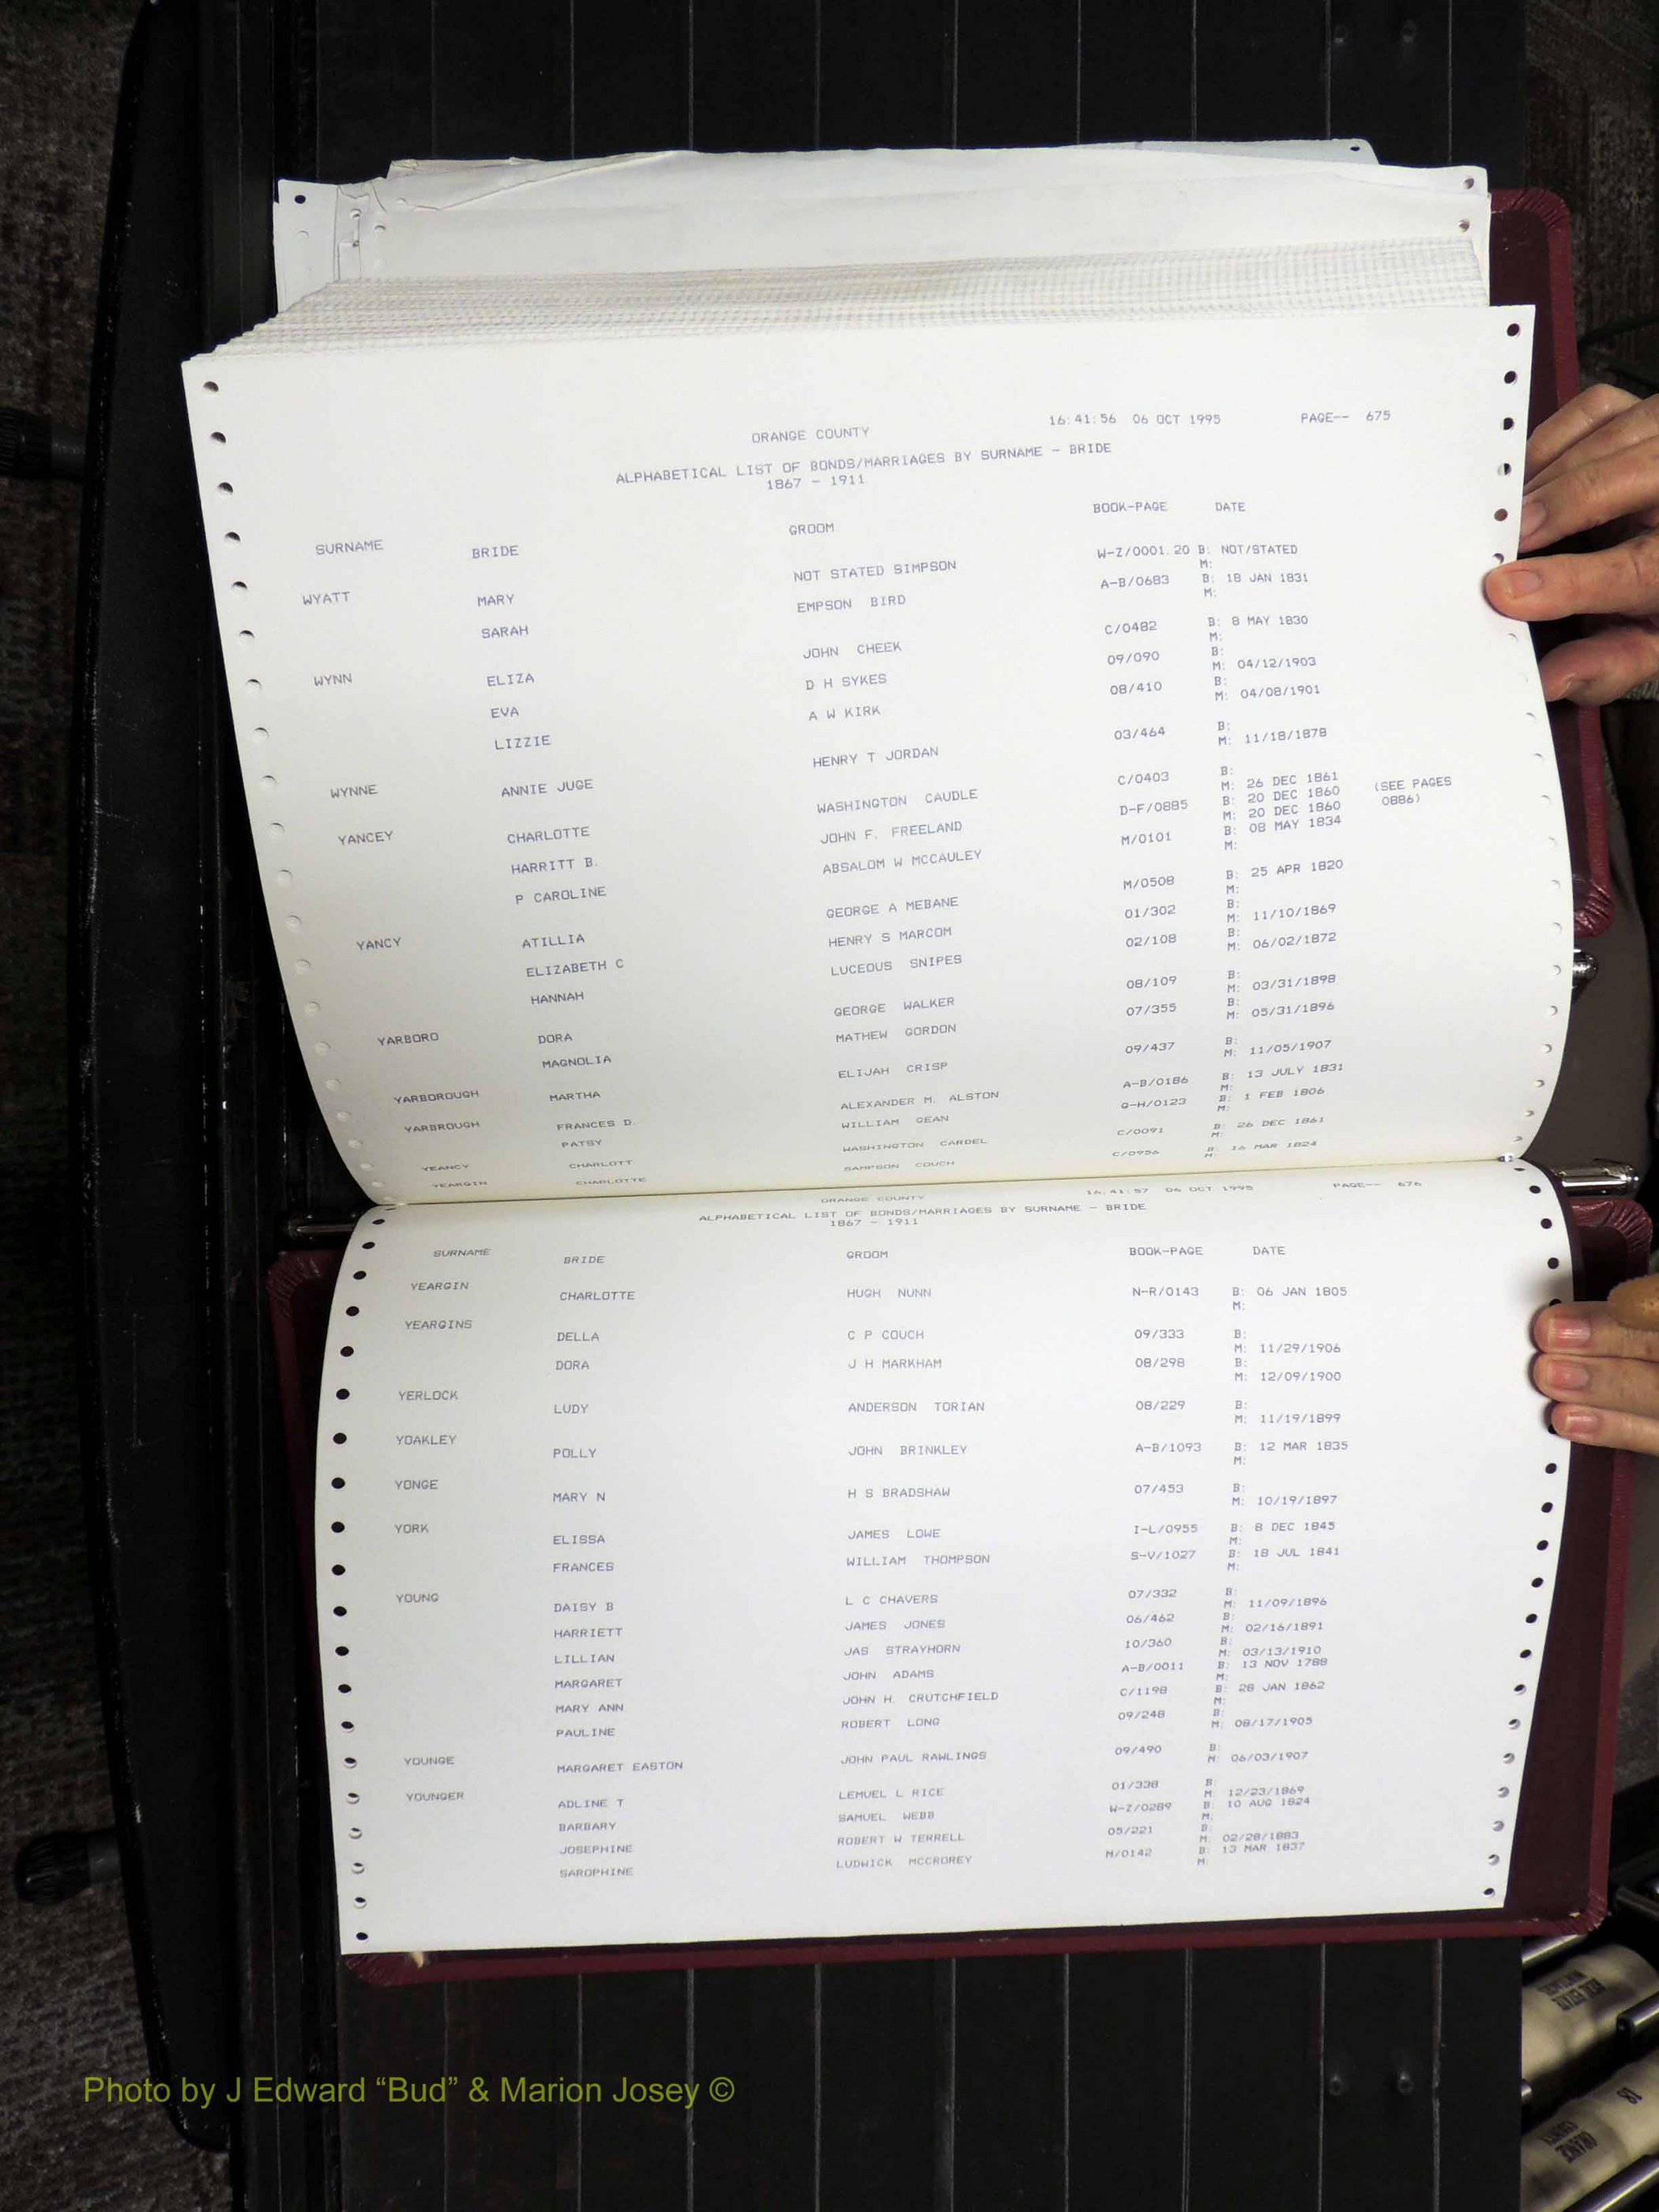 16:41:56 06 OCT 1995 PAGE-- 675
ORANGE COUNTY
ALPHABETICAL LIST OF BONDS/MARRIAGES BY SURNAME - BRIDE
1867 - 1911
SURNAME BRIDE GROOM BOOK-PAGE DATE
WYATT MARY NOT STATED SIMPSON W-Z/0001.20 B: NOT/STATED
M:
SARAH EMPSON BIRD A-B/0683 B: 18 JAN 1831
M:
WYNN ELIZA JOHN CHEEK C/0482 B: 8 MAY 1830
M:
EVA D H SYKES 09/090 B:
M: 04/12/1903
LIZZIE A W KIRK 08/410 B:
M: 04/08/1901
WYNNE ANNIE JUGE HENRY T JORDAN 03/464 B:
M: 11/18/1878
YANCEY CHARLOTTE WASHINGTON CAUDLE C/0403 B:
M: 26 DEC 1861
HARRITT B. JOHN F. FREELAND D-F/0885 B: 20 DEC 1860 (SEE PAGES
M: 20 DEC 1860 0886)
P CAROLINE ABSALOM W MCCAULEY M/0101 B: 08 MAY 1834
M:
YANCY ATILLIA GEORGE A MEBANE M/0508 B: 25 APR 1820
M:
ELIZABETH C HENRY S MARCOM 01/302 B:
M: 11/10/1869
HANNAH LUCEOUS SNIPES 02/108 B:
M: 06/02/1872
YARBORO DORA GEORGE WALKER 08/109 B:
M: 03/31/1898
MAGNOLIA MATHEW GORDON 07/355 B:
M: 05/31/1896
YARBOROUGH MARTHA ELIJAH CRISP 09/437 B:
M: 11/05/1907
YARBROUGH FRANCES D. ALEXANDER M. ALSTON A-B/0186 B: 13 JULY 1831
M:
PATSY WILLIAM GEAN G-H/0123 B: 1 FEB 1806
M:
YEANCY CHARLOTT WASHINGTON CARDEL C/0091 B: 26 DEC 1861
M:
YEARGIN CHARLOTTE SAMPSON COUCH C/0956 B: 16 MAR 1824
M:
16:41:57 06 OCT 1995 PAGE-- 676
ORANGE COUNTY
ALPHABETICAL LIST OF BONDS/MARRIAGES BY SURNAME - BRIDE
1867 - 1911
SURNAME BRIDE GROOM BOOK-PAGE DATE
YEARGIN CHARLOTTE HUGH NUNN N-R/0143 B: 06 JAN 1805
M:
YEARGINS DELLA C P COUCH 09/333 B:
M: 11/29/1906
DORA J H MARKHAM 08/298 B:
M: 12/09/1900
YERLOCK LUDY ANDERSON TORIAN 08/229 B:
M: 11/19/1899
YOAKLEY POLLY JOHN BRINKLEY A-B/1093 B: 12 MAR 1835
M:
YONGE MARY N H S BRADSHAW 07/453 B:
M: 10/19/1897
YORK ELISSA JAMES LOWE I-L/0955 B: 8 DEC 1845
M:
FRANCES WILLIAM THOMPSON S-V/1027 B: 18 JUL 1841
M:
YOUNG DAISY B L C CHAVERS 07/332 B:
M: 11/09/1896
HARRIETT JAMES JONES 06/462 B:
M: 02/16/1891
LILLIAN JAS STRAYHORN 10/360 B:
M: 03/13/1910
MARGARET JOHN ADAMS A-B/0011 B: 13 NOV 1788
M:
MARY ANN JOHN H. CRUTCHFIELD C/1198 B: 28 JAN 1862
M:
PAULINE ROBERT LONG 09/248 B:
M: 08/17/1905
YOUNGE MARGARET EASTON JOHN PAUL RAWLINGS 09/490 B:
M: 06/03/1907
YOUNGER ADLINE T LEMUEL L RICE 01/338 B:
M: 12/23/1869
BARBARY SAMUEL WEBB W-Z/0289 B: 10 AUG 1824
M:
JOSEPHINE ROBERT W TERRELL 05/221 B:
M: 02/28/1883
SAROPHINE LUDWICK MCCROREY M/0142 B: 13 MAR 1837
M:
Photo by J Edward “Bud” & Marion Josey ©